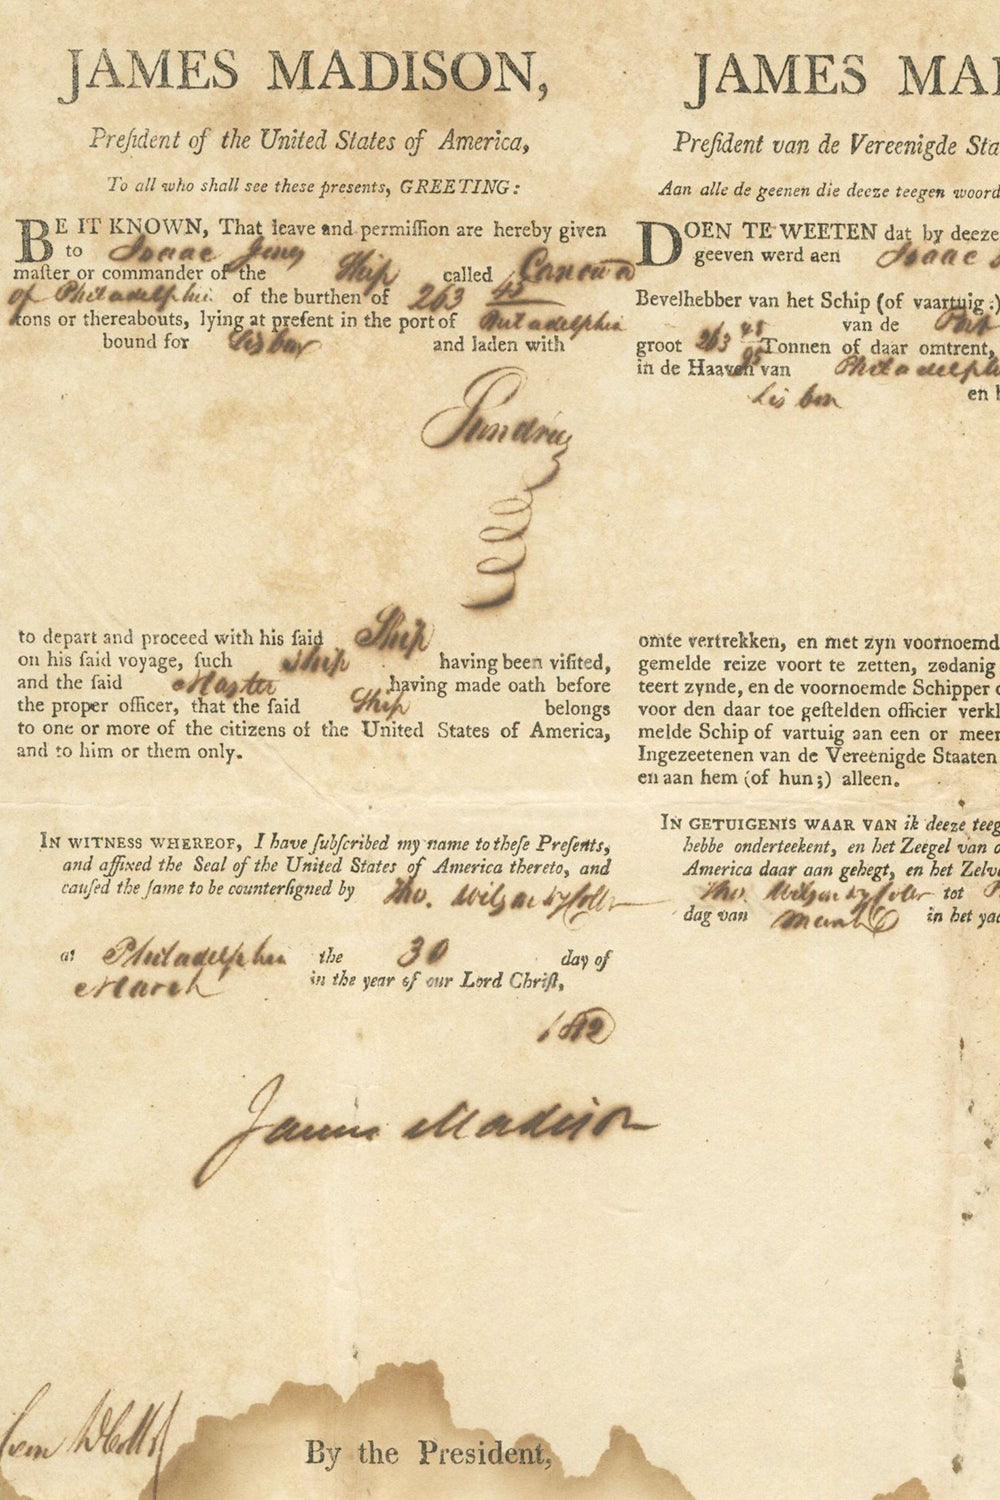 JAMES MADISON,
Preſident of the United States of America,
To all who shall see these presents, GREETING:
BE IT KNOWN, That leave and permiſſion are hereby given
to Isaac Jones
maſter or commander of the Ship called
of Philadelphia of the burthen of 263 45
tons or thereabouts, lying at preſent in the port of Philadelphia
bound for Lisbon and laden with
Sundries
to depart and proceed with his ſaid Ship
on his ſaid voyage, ſuch Ship having been viſited,
and the ſaid Master having made oath before
the proper officer, that the ſaid Ship belongs
to one or more of the citizens of the United States of America,
and to him or them only.
IN WITNESS WHEREOF, I have ſubſcribed my name to theſe Preſents,
and affixed the Seal of the United States of America thereto, and
cauſed the ſame to be counterſigned by Tho. Wilson Dy Collr
at Philadelphia the 30 day of
March in the year of our Lord Chriſt,
1812
James Madison
By the President,
JAMES MAD
Preſident van de Vereenigde Sta
Aan alle de geenen die deeze teegen woord
DOEN TE WEETEN dat by deeze
geeven werd aen Isaac
Bevelhebber van het Schip (of vaartuig:)
van de Port
groot 263 45 95 Tonnen of daar omtrent,
in de Haaven van Philadelph
Lisbon en
omte vertrekken, en met zyn voornoemd
gemelde reize voort te zetten, zodanig
teert zynde, en de voornoemde Schipper
voor den daar toe geſtelden officier verkl
melde Schip of vartuig aan een or meer
Ingezeetenen van de Vereenigde Staaten
en aan hem (of hun;) alleen.
IN GETUIGENIS WAAR VAN ik deeze teeg
hebbe onderteekent, en het Zeegel van
America daar aan gehegt, en het Zelv
Tho. Wilson Dy Collr tot
dag van March in het yaa